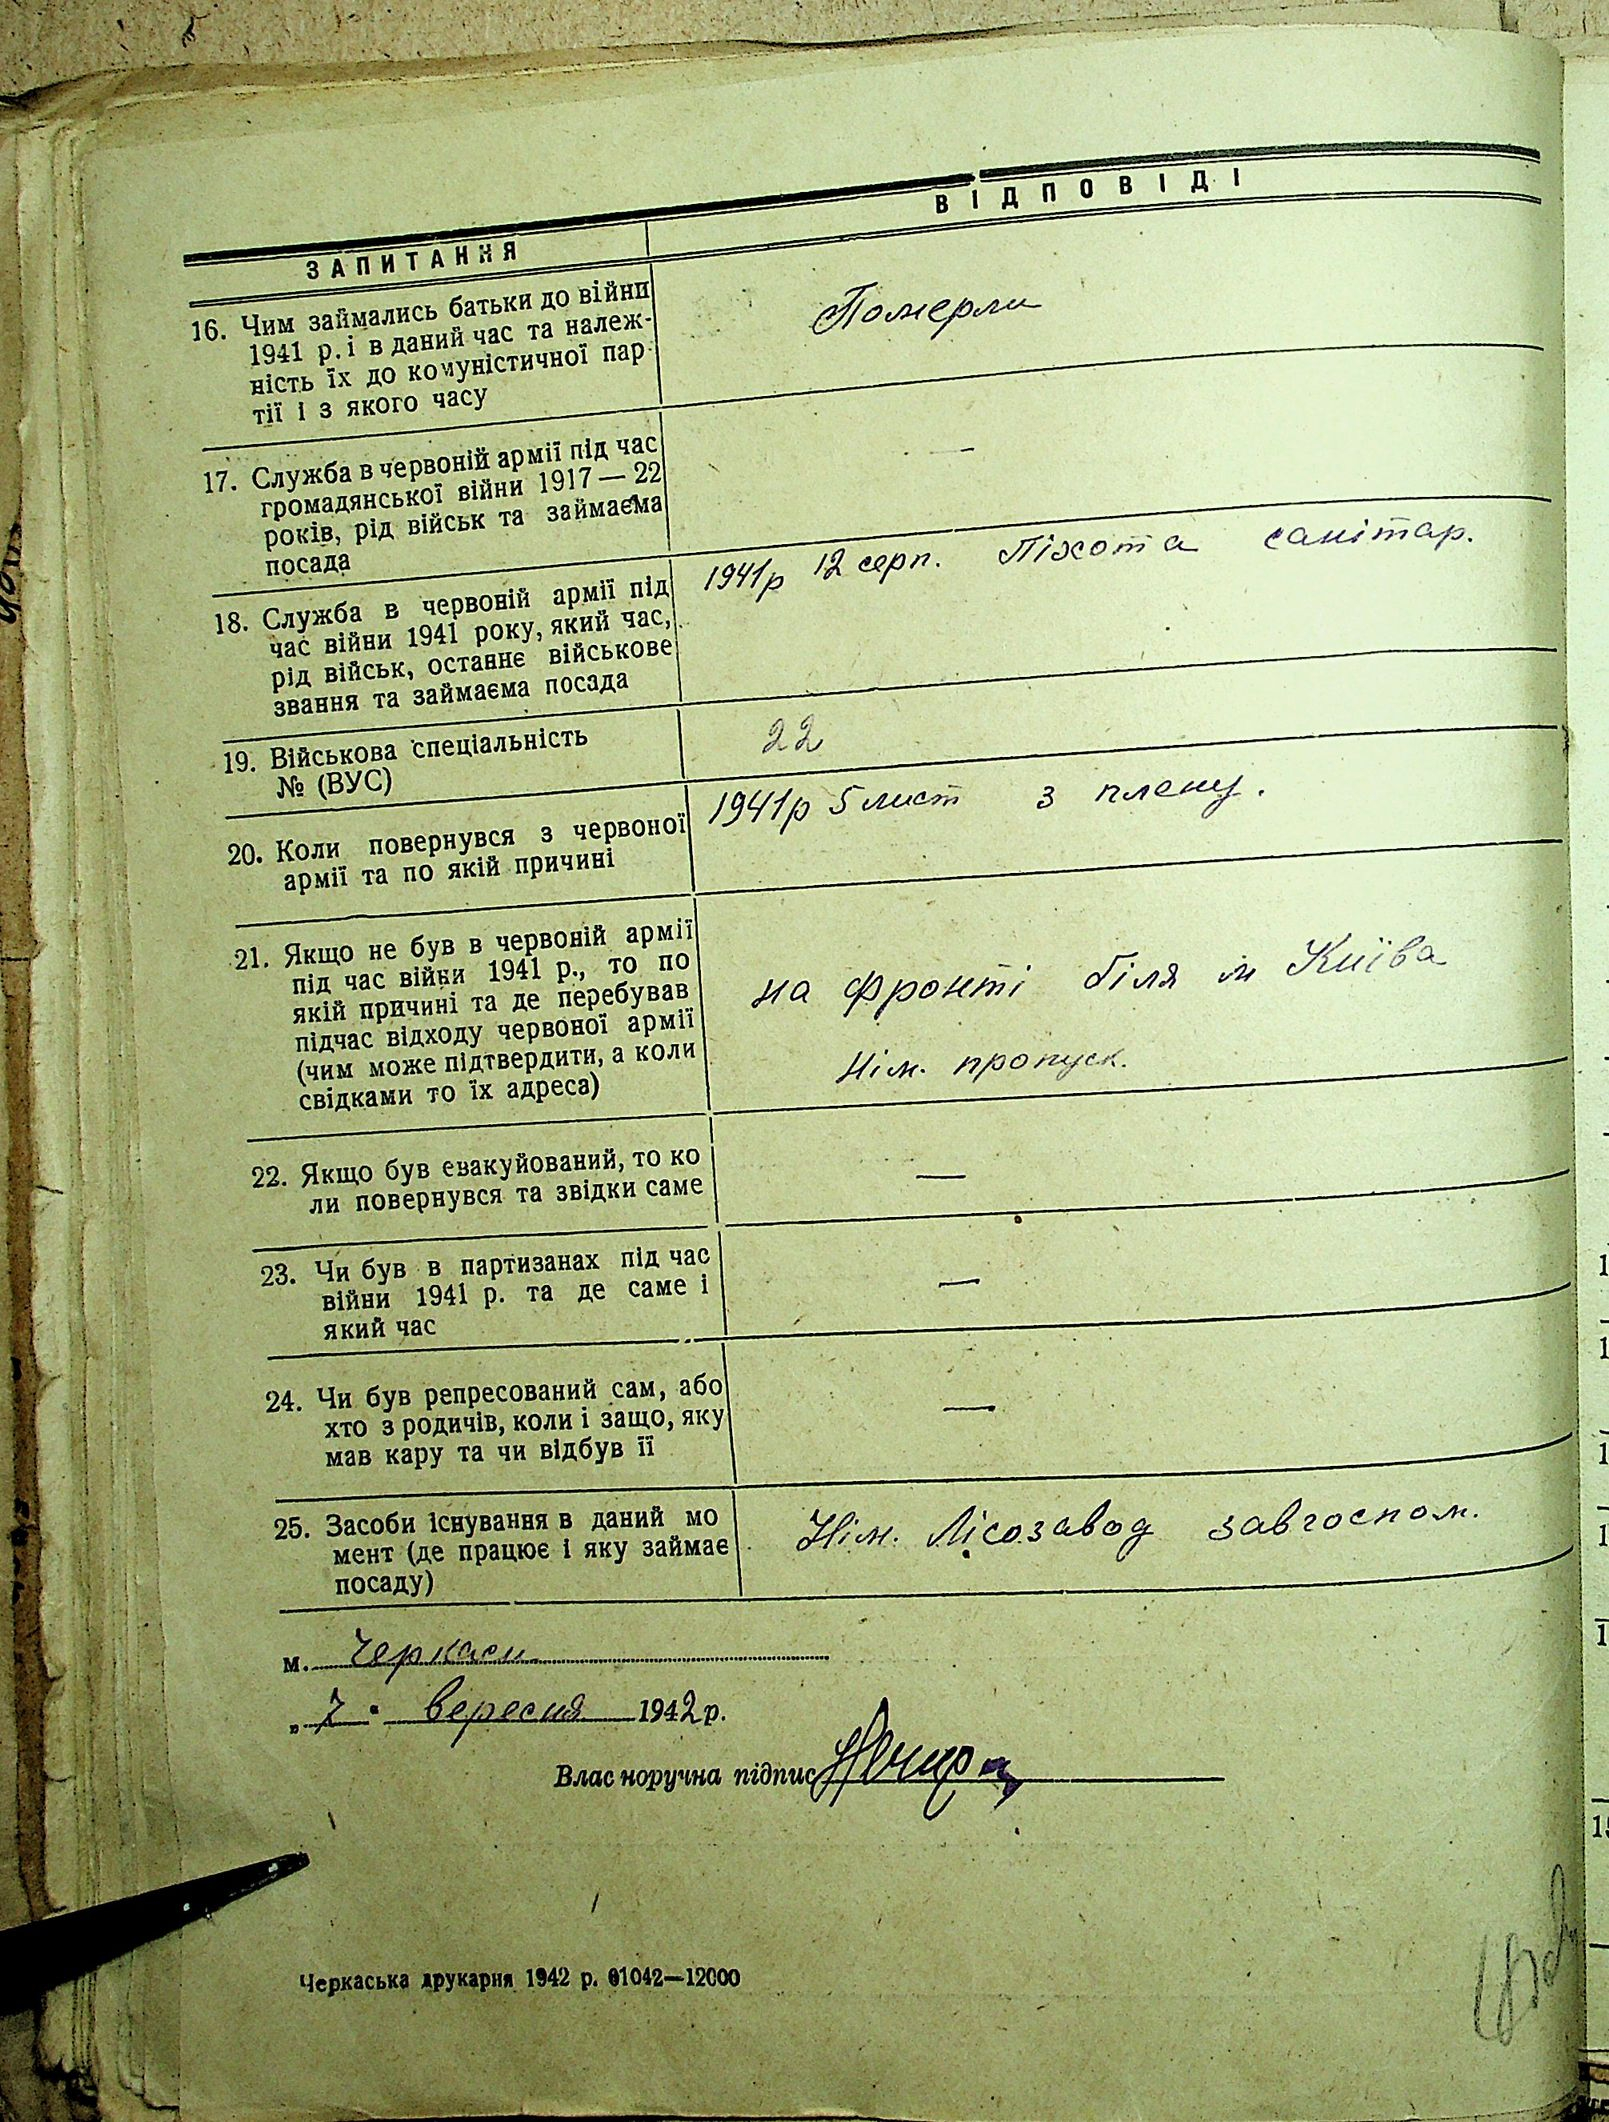 ЗАПИТАННЯ
ВІДПОВІДІ
16. Чим займались батьки до війни
1941 р. і в даний час та належ-
ність їх до комуністичної пар-
тії і з якого часу
Померли
17. Служба в червоній армії під час
громадянської війни 1917 — 22
років, рід військ та займаєма
посада
—
18. Служба в червоній армії під
час війни 1941 року, який час,
рід військ, останнє військове
звання та займаєма посада
1941р 12 серп. Піхота санітар.
19. Військова спеціальність
№ (ВУС)
22
20. Коли повернувся з червоної
армії та по якій причині
1941р 5 лист з плену.
21. Якщо не був в червоній армії
під час війни 1941 р., то по
якій причині та де перебував
підчас відходу червоної армії
(чим може підтвердити, а коли
свідками то їх адреса)
на фронті біля м Київа
Нім. пропуск.
22. Якщо був евакуйований, то ко
ли повернувся та звідки саме
—
23. Чи був в партизанах під час
війни 1941 р. та де саме і
який час
—
24. Чи був репресований сам, або
хто з родичів, коли і защо, яку
мав кару та чи відбув її
—
25. Засоби існування в даний мо
мент (де працює і яку займає
посаду)
Нім. Лісозавод завгоспом.
м. Черкаси
„7" вересня 1942 р.
Власноручна підпис
Черкаська друкарня 1942 р. 01042—12000